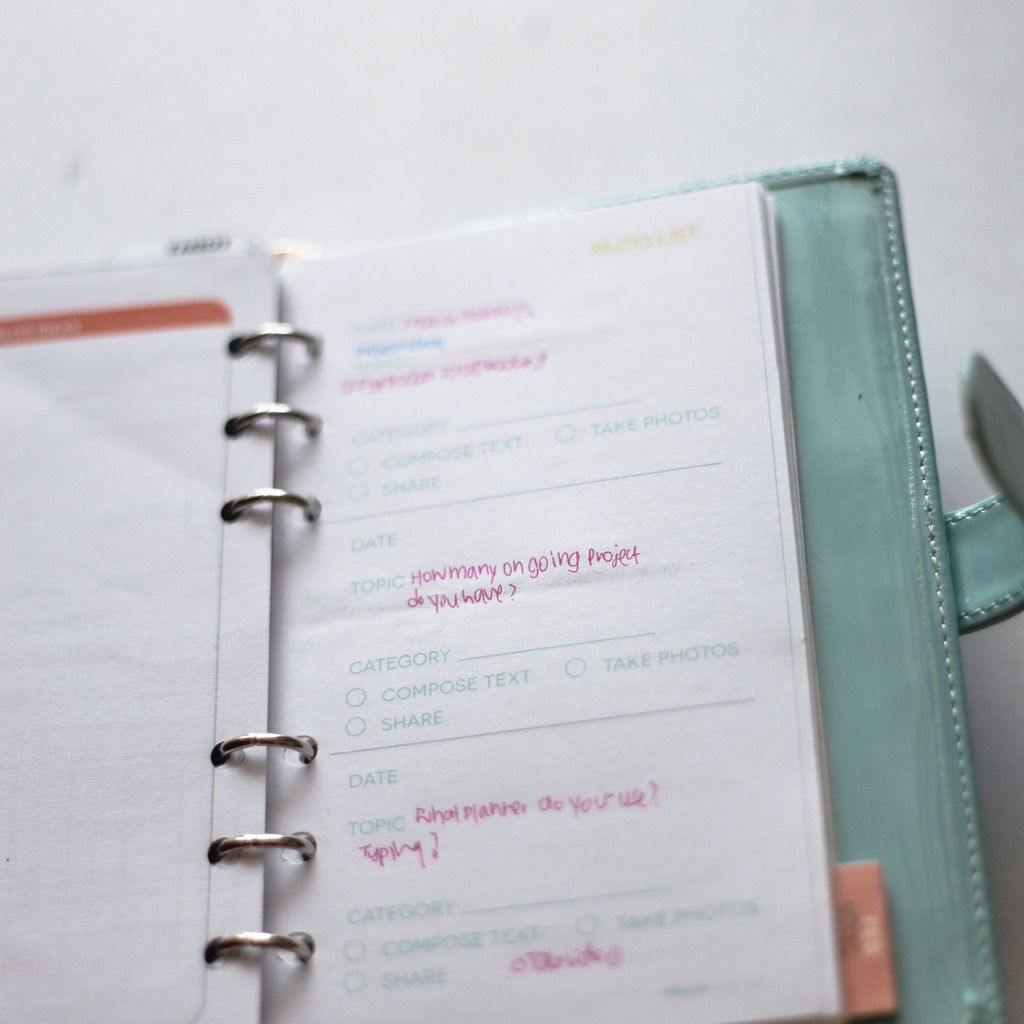 BLOG LIST
CATEGORY
COMPOSE TEXT TAKE PHOTOS
SHARE
DATE
TOPIC How many on going project
do you have?
CATEGORY
COMPOSE TEXT TAKE PHOTOS
SHARE
DATE
TOPIC What planner do you use?
Typing?
CATEGORY
COMPOSE TEXT TAKE PHOTOS
SHARE